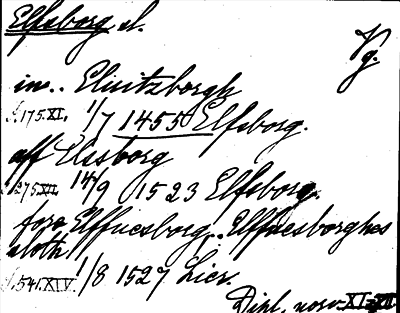 Elfsborg sl. Vg.
in.. Elsitzborgh
s. 175. XI. 1/7 1455 Elfsborg.
aff Elssborg
s. 275 XII. 14/9 1523 Elfsborg.
fore Elffuesborg,. Elffuesborghes
sloth
s. 541. XIV. 1/8 1527 Lier.
Dipl. norv. XI-XII